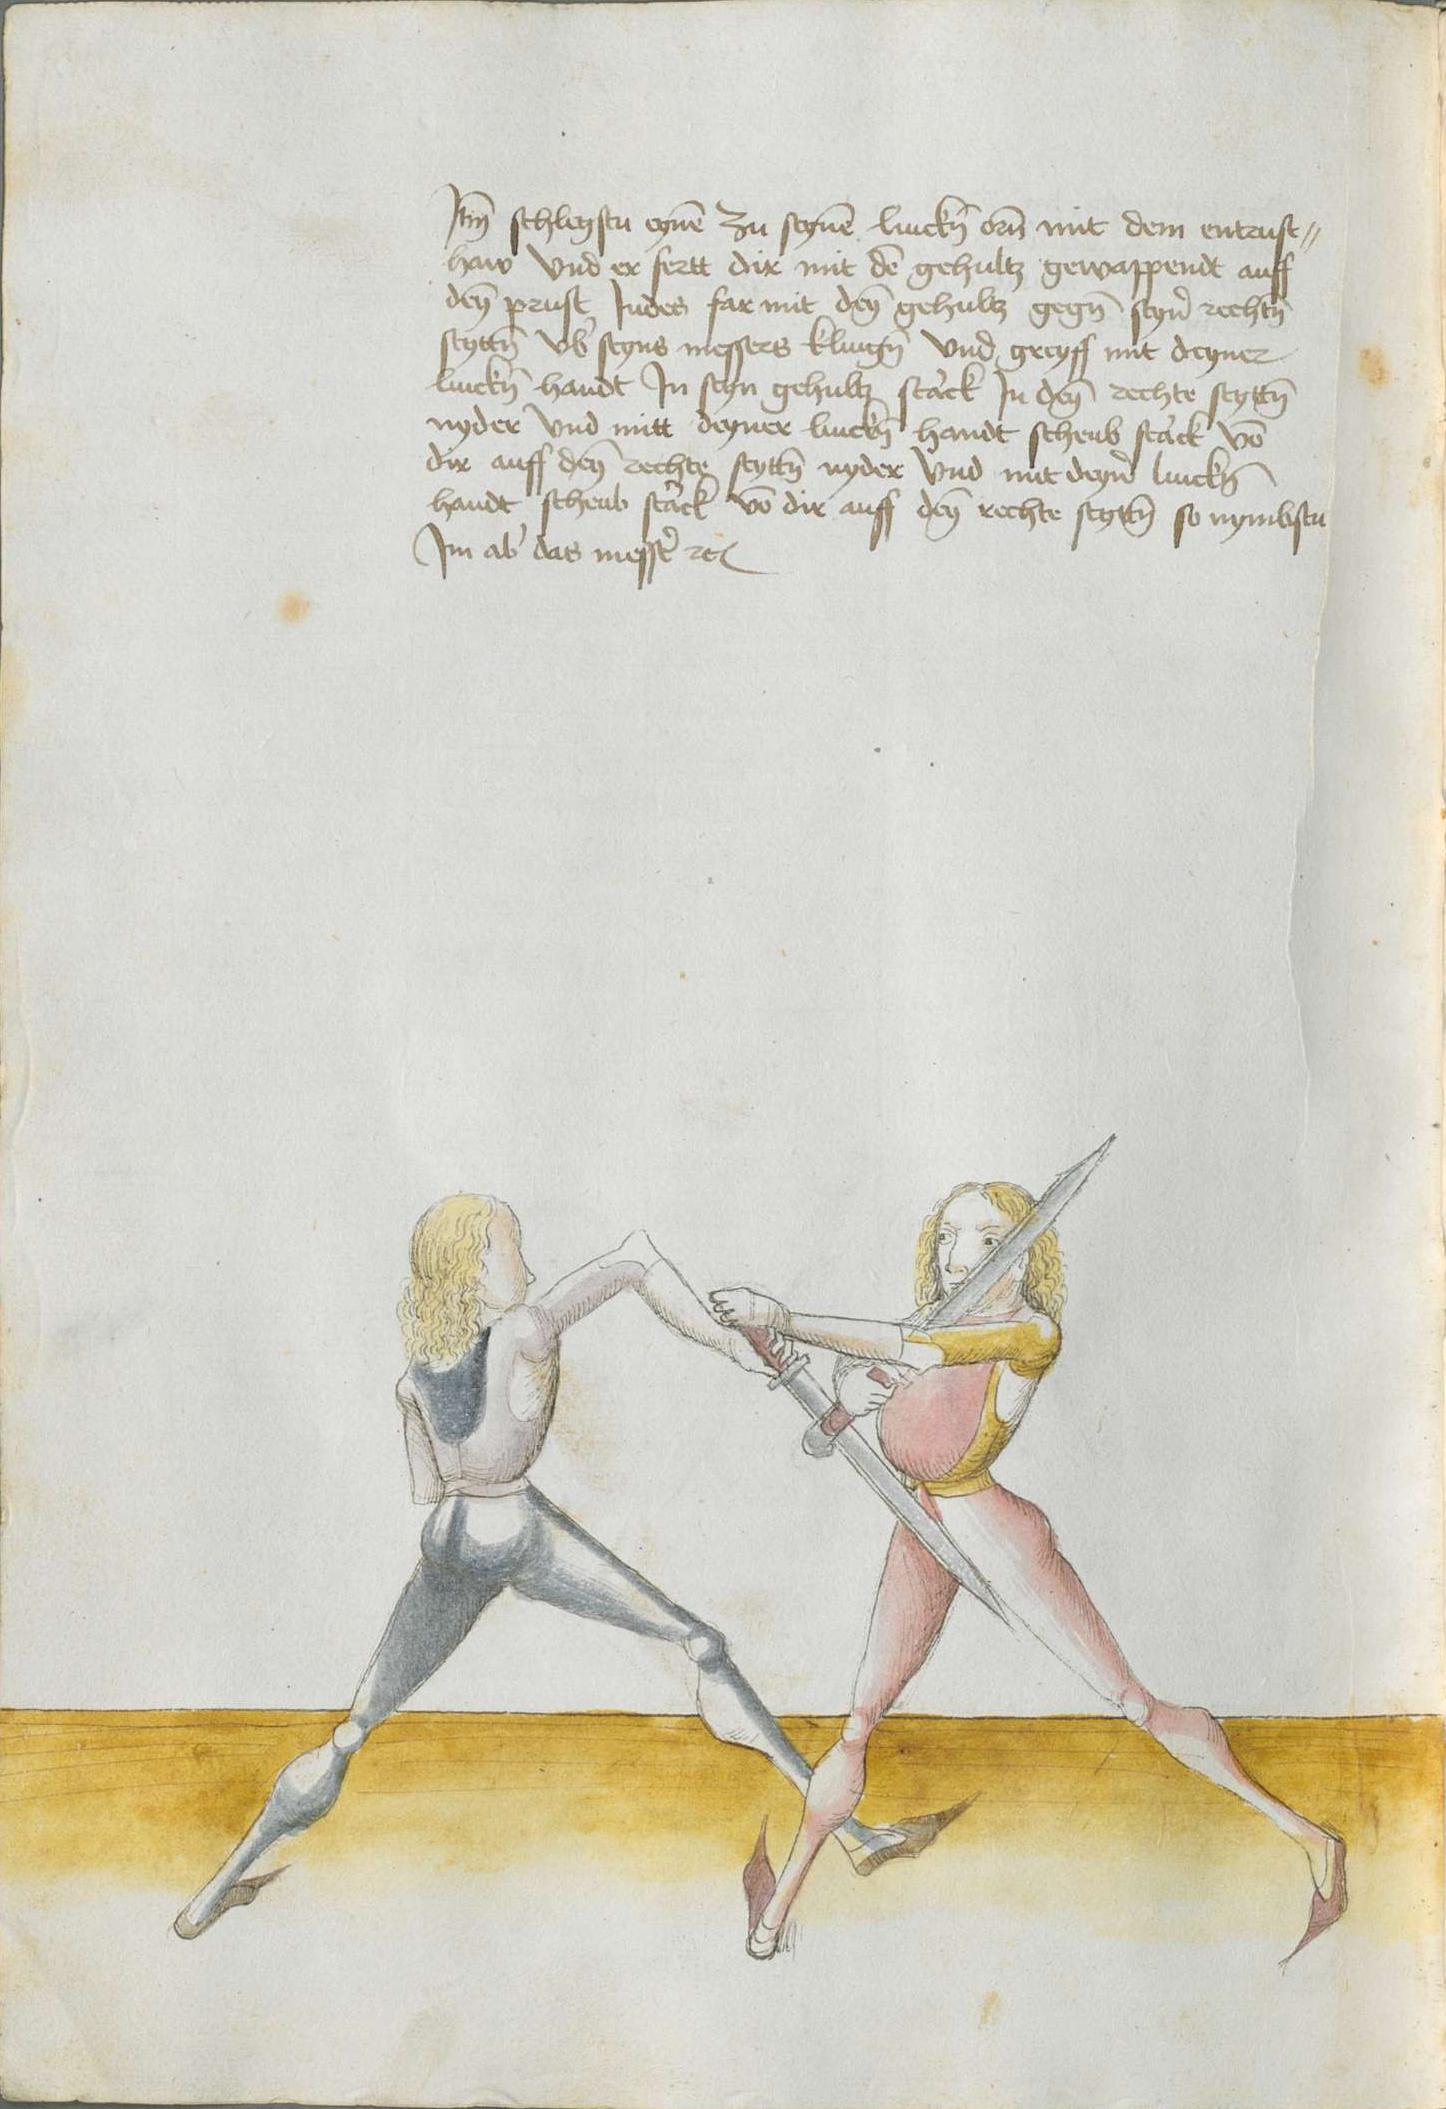 Itm̄ schlegstu eynē zu seynē linckñ orñ mit dem entrust〃
haw Vnd er fertt dir mit dē gehultz gewappendt auff
deñ prust Indes far mit deñ gehultz gegñ seyn̄ rechtñ
seyttñ vb̄ seyns messers klingñ Vnd greyff mit deyner
linckñ handt In seyn gehultz starck In deñ rechte seyttñ
nyder Vnd mitt deyner linckñ handt scheub starck vō
dir auff deñ rechte seyttñ nyder Vnd mit deyn̄ linckñ
handt scheub starck vō dir auff deñ rechte seyttñ so nymbstu
Im ab das messer̄ ꝛc